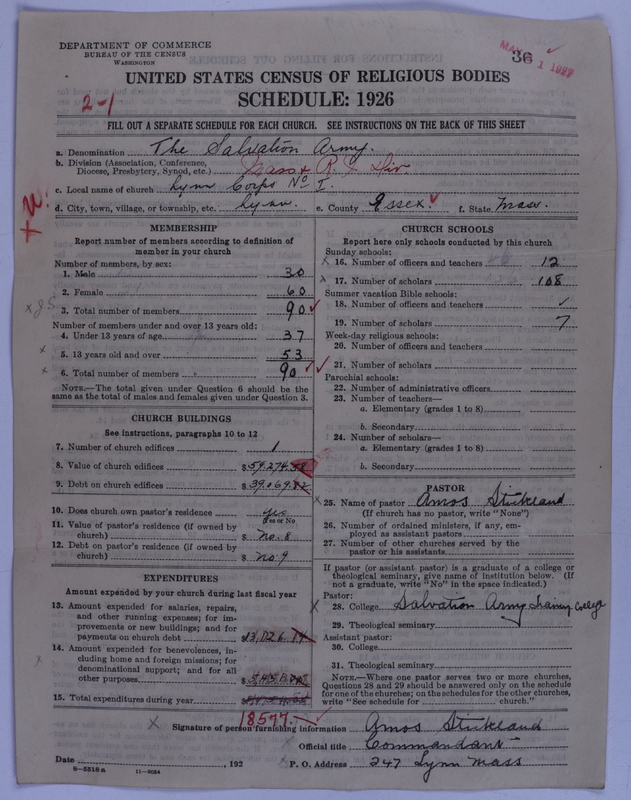 DEPARTMENT OF COMMERCE
BUREAU OF THE CENSUS
WASHINGTON
36
1 1927
UNITED STATES CENSUS OF RELIGIOUS BODIES
2-1
SCHEDULE: 1926
FILL OUT A SEPARATE SCHEDULE FOR EACH CHURCH. SEE INSTRUCTIONS ON THE BACK OF THIS SHEET
a. Denomination The Salvation Army.
b. Division (Association, Conference, Diocese, Presbytery, Synod, etc.) Mass & R. I. Div
c. Local name of church Lynn Corps No I.
d. City, town, village, or township, etc. Lynn. e. County Essex f. State Mass.
MEMBERSHIP
Report number of members according to definition of
member in your church
Number of members, by sex:
1. Male 30
2. Female 60
3. Total number of members 90
Number of members under and over 13 years old:
4. Under 13 years of age 37
5. 13 years old and over 53
6. Total number of members 90
NOTE.—The total given under Question 6 should be
same as the total of males and females given under Question 3.
CHURCH BUILDINGS
See instructions, paragraphs 10 to 12
7. Number of church edifices 1
8. Value of church edifices $59,274.
9. Debt on church edifices $39,069.82
10. Does church own pastor's residence yes
(Yes or No)
11. Value of pastor's residence (if owned by
church) $ no. 8
12. Debt on pastor's residence (if owned by
church) $ no. 9
EXPENDITURES
Amount expended by your church during last fiscal year
13. Amount expended for salaries, repairs,
and other running expenses; for im-
provements or new buildings; and for
payments on church debt $
14. Amount expended for benevolences, in-
cluding home and foreign missions; for
denominational support; and for all
other purposes $
15. Total expenditures during year $
18577.
CHURCH SCHOOLS
Report here only schools conducted by this church
Sunday schools:
16. Number of officers and teachers 12
17. Number of scholars 108
Summer vacation Bible schools:
18. Number of officers and teachers
19. Number of scholars 7
Week-day religious schools:
20. Number of officers and teachers
21. Number of scholars
Parochial schools:
22. Number of administrative officers
23. Number of teachers—
a. Elementary (grades 1 to 8)
b. Secondary
24. Number of scholars—
a. Elementary (grades 1 to 8)
b. Secondary
PASTOR
25. Name of pastor Amos Strickland
(If church has no pastor, write "None")
26. Number of ordained ministers, if any, em-
ployed as assistant pastors
27. Number of other churches served by the
pastor or his assistants
If pastor (or assistant pastor) is a graduate of a college or
theological seminary, give name of institution below. (If
not a graduate, write "No" in the space indicated.)
Pastor:
28. College Salvation Army Training College
29. Theological seminary
Assistant pastor:
30. College
31. Theological seminary
NOTE.—Where one pastor serves two or more churches,
Questions 28 and 29 should be answered only on the schedule
for one of the churches; on the schedules for the other churches,
write "See schedule for church."
Signature of person furnishing information Amos Strickland
Official title Commandant
Date , 192 P. O. Address 247 Lynn Mass
8-5318a 11-9034